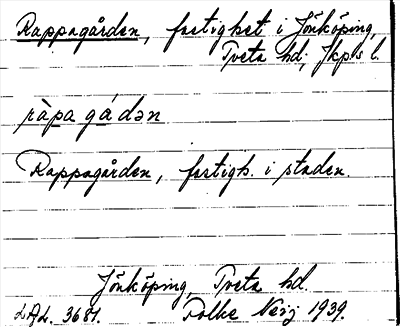 Rappagården, fastighet i Jönköping,
Tveta hd, Jkps l.
ràpa gá dən
Rappagården, fastigh. i staden.
Jönköping, Tveta hd.
LAL. 3681. Folke Neij 1939.